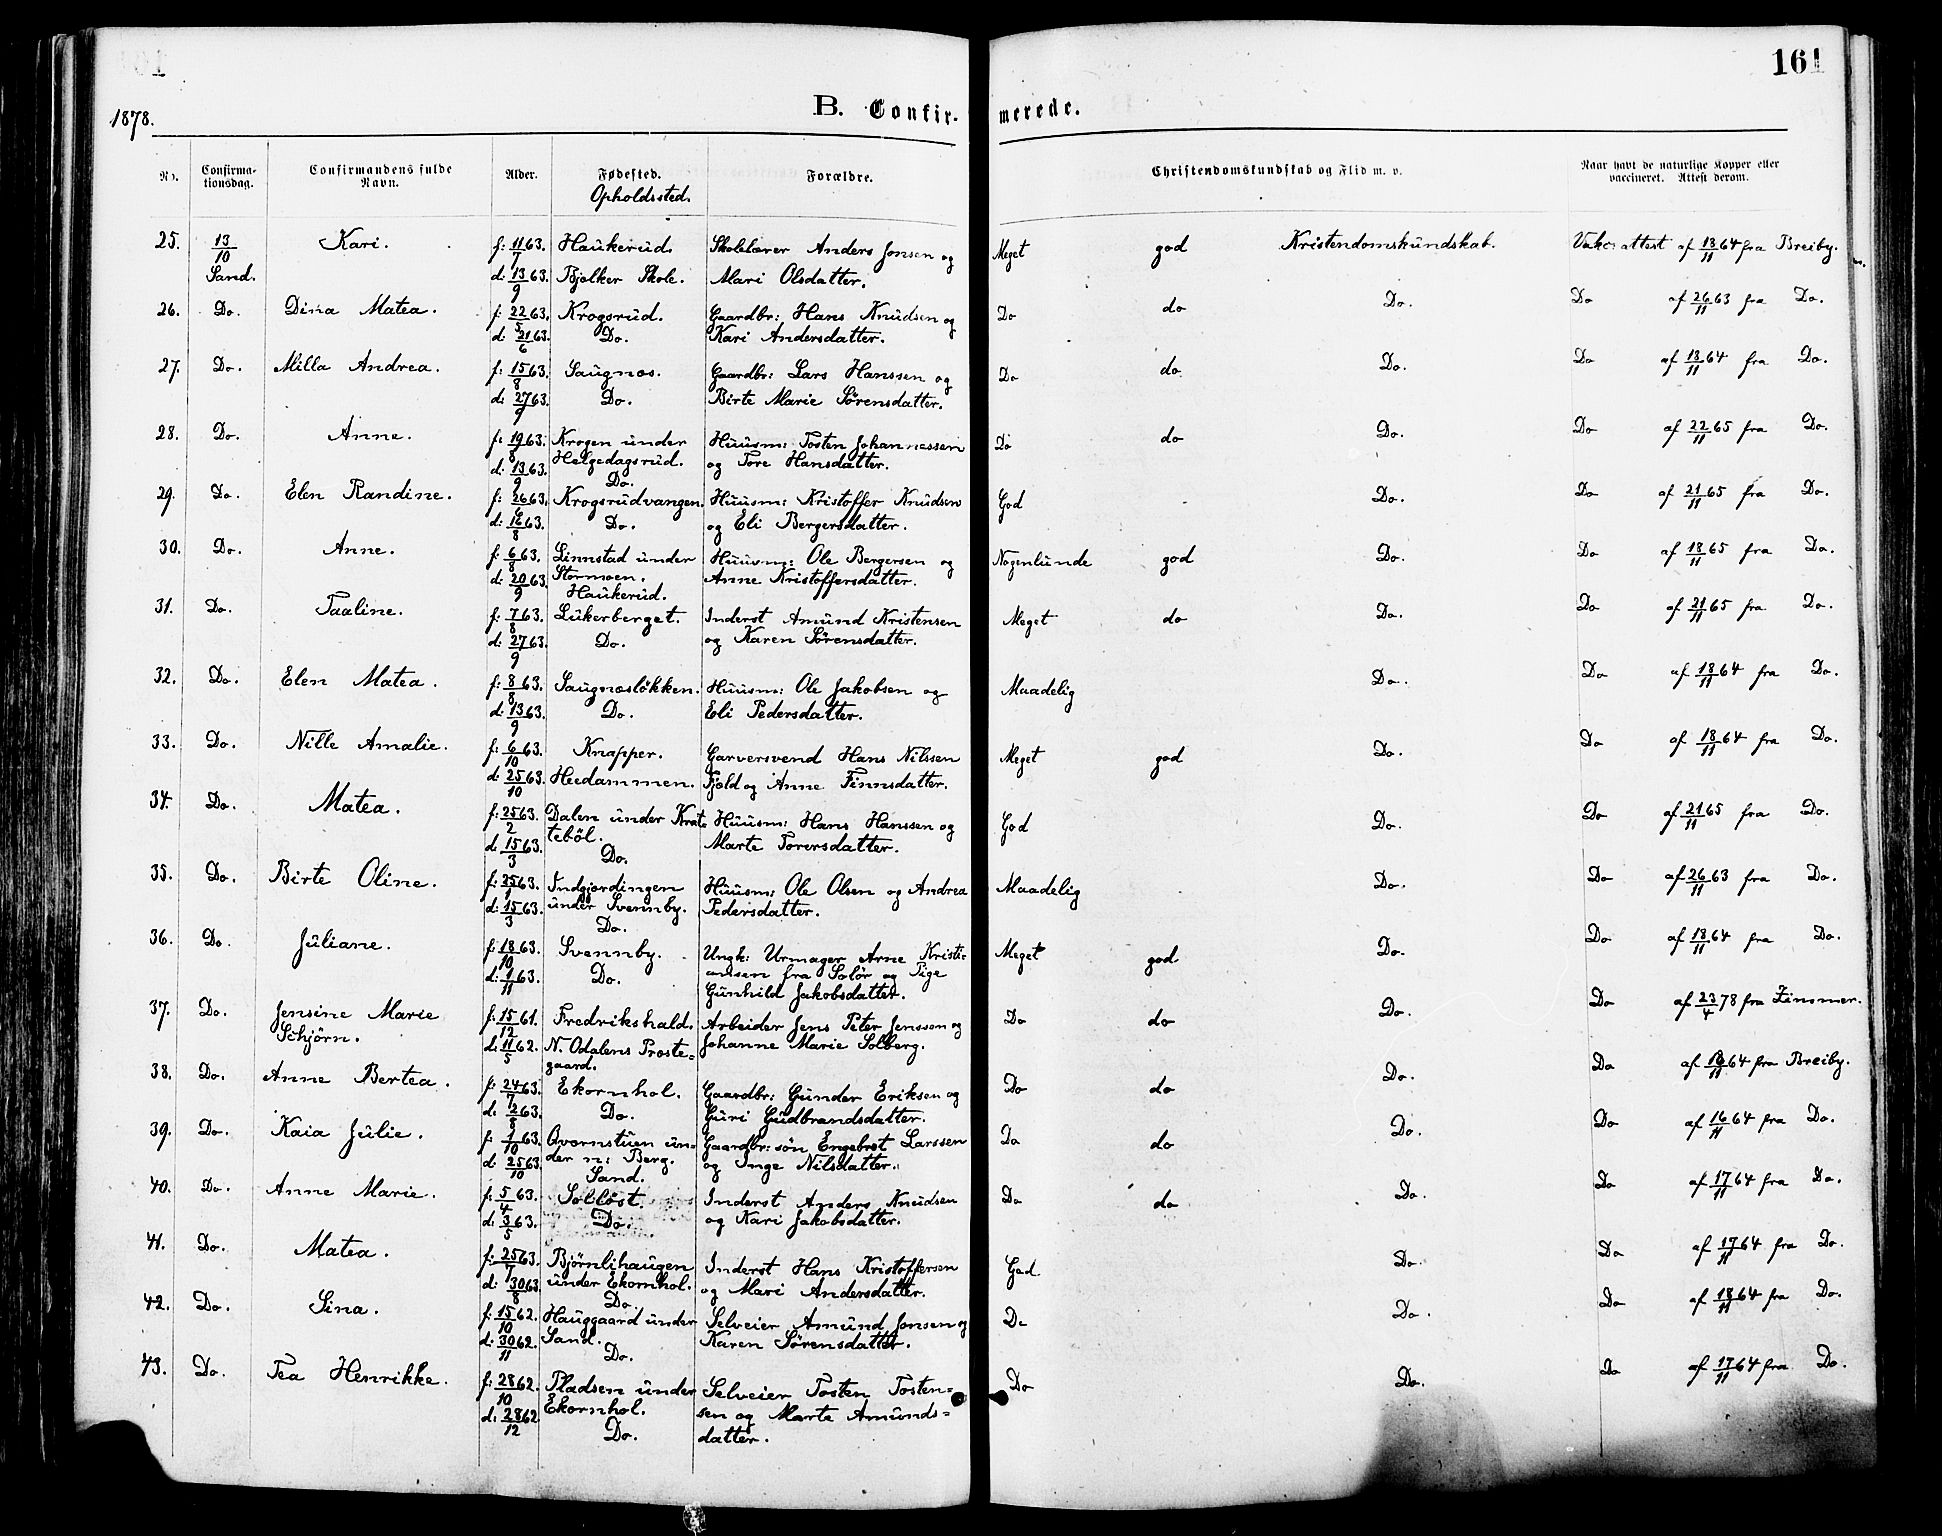 161
1878.
B. Confirmerede.
Nr. Confirmationsdag. Confirmandens fulde Navn. Alder. Fødested. Opholdssted. Forældre. Christendomskundskab og Flid m. v. Naar havt de naturlige Kopper eller vaccineret. Attest derom.
25. 13/10 Kari. f: 11/7 63. Haukerud. Skolelærer Anders Jonsen og Meget god Kristendomskundskab. Vakc: attest af 13/11 64 fra Breiby.
Sand. d: 13/9 63. Bjølker Skole. Mari Olsdatter.
26. Do. Dina Matea. f: 22/5 63. Krogsrud. Gaardbr: Hans Knudsen og Do do Do. Do af 26/11 63 fra Do.
d: 21/6 63. Do. Kari Andersdatter.
27. Do. Milla Andrea. f: 15/8 63. Saugnæs. Gaardbr: Lars Hanssen og Do do Do. Do af 18/11 64 fra Do.
d: 27/9 63. Do. Birte Marie Sörensdatter.
28. Do. Anne. f: 19/8 63. Krogen under Huusm: Tosten Johannessen Do do Do. Do af 22/11 65 fra Do.
d: 13/9 63. Helgedagsrud. og Tore Hansdatter.
Do.
29. Do. Elen Randine. f: 26/6 63. Krogsrudvangen. Huusm: Kristoffer Knudsen God Do. Do af 21/11 65 fra Do.
d: 16/8 63. Do. og Eli Bergersdatter.
30. Do. Anne. f: 6/8 63. Linnstad under Huusm: Ole Bergersen og Nogenlunde god Do. Do af 18/11 65 fra Do.
d: 20/9 63. Stormoen. Anne Kristoffersdatter.
Haukerud.
31. Do. Taaline. f: 7/8 63. Lukerberget. Inderst Amund Kristensen Meget do Do. Do af 21/11 65 fra Do.
d: 27/9 63. Do. og Karen Sörensdatter.
32. Do. Elen Matea. f: 8/8 63. Saugnæslökken. Huusm: Ole Jakobsen og Maadelig Do. Do af 18/11 64 fra Do.
d: 13/9 63. Do. Eli Pedersdatter.
33. Do. Nille Amalie. f: 6/10 63. Knapper. Garversvend Hans Nilssen Meget god Do. Do af 18/11 64 fra Do.
d: 25/10 63. Heedammen. Fjeld og Anne Finnsdatter.
34. Do. Matea. f: 25/2 63. Dalen under Krate Huusm: Hans Hanssen og God Do. Do af 21/11 65 fra Do.
d: 15/3 63. teböl. Marte Torersdatter.
Do.
35. Do. Birte Oline. f: 25/1 63. Indgjordingen Huusm: Ole Olsen og Andrea Maadelig Do. Do af 26/11 63 fra Do.
d: 15/3 63. under Svennby. Pedersdatter.
Do.
36. Do. Juliane. f: 18/10 63. Svennby. Ungk: Urmager Arne Kristi- Meget god Do. Do af 18/11 64 fra Do.
d: 1/11 63. Do. ansen fra Solör og Pige
Gunhild Jakobsdatter.
37. Do. Jensine Marie f: 15/12 61. Fredrikshald. Arbeider Jens Peter Jenssen og Do do Do. Do af 23/4 78 fra Zimmer.
Schjörn. d: 11/5 62. N. Odalens Præste- Johanne Marie Solberg.
gaard.
38. Do. Anne Bertea. f: 24/7 63. Ekornhol. Gaardbr: Gunder Eriksen og Do do Do. Do af 18/11 64 fra Breiby.
d: 2/8 63. Do. Guri Gudbrandsdatter.
39. Do. Kaia Julie. f: 7/10 63. Qvernstuen un- Gaardbr: sön Engebret Larssen Do do Do. Do af 16/11 64 fra Do.
d: 25/10 63. der n: Berg. og Inge Nilsdatter.
Sand.
40. Do. Anne Marie. f: 5/4 63. Solløst. Inderst Anders Knudsen Do do Do. Do af 17/11 64 fra Do.
d: 3/5 63. Do. og Kari Jakobsdatter.
41. Do. Matea. f: 25/7 63. Bjørnlihaugen Inderst Hans Kristoffersen God Do. Do af 17/11 64 fra Do.
d: 30/8 63. under Ekornhol. og Mari Andersdatter.
Do.
42. Do. Sina. f: 15/10 62. Hauggaard under Selveier Amund Jonsen og Do Do. Do af 18/11 64 fra Do.
d: 30/11 62. Sand. Karen Sörensdatter.
Do.
43. Do. Tea Henrikke. f: 28/10 62. Pladsen under Selveier Tosten Tosten- Do Do. Do af 17/11 64 fra Do.
d: 28/12 62 Ekornhol. sen og Marte Amunds-
Do. datter.